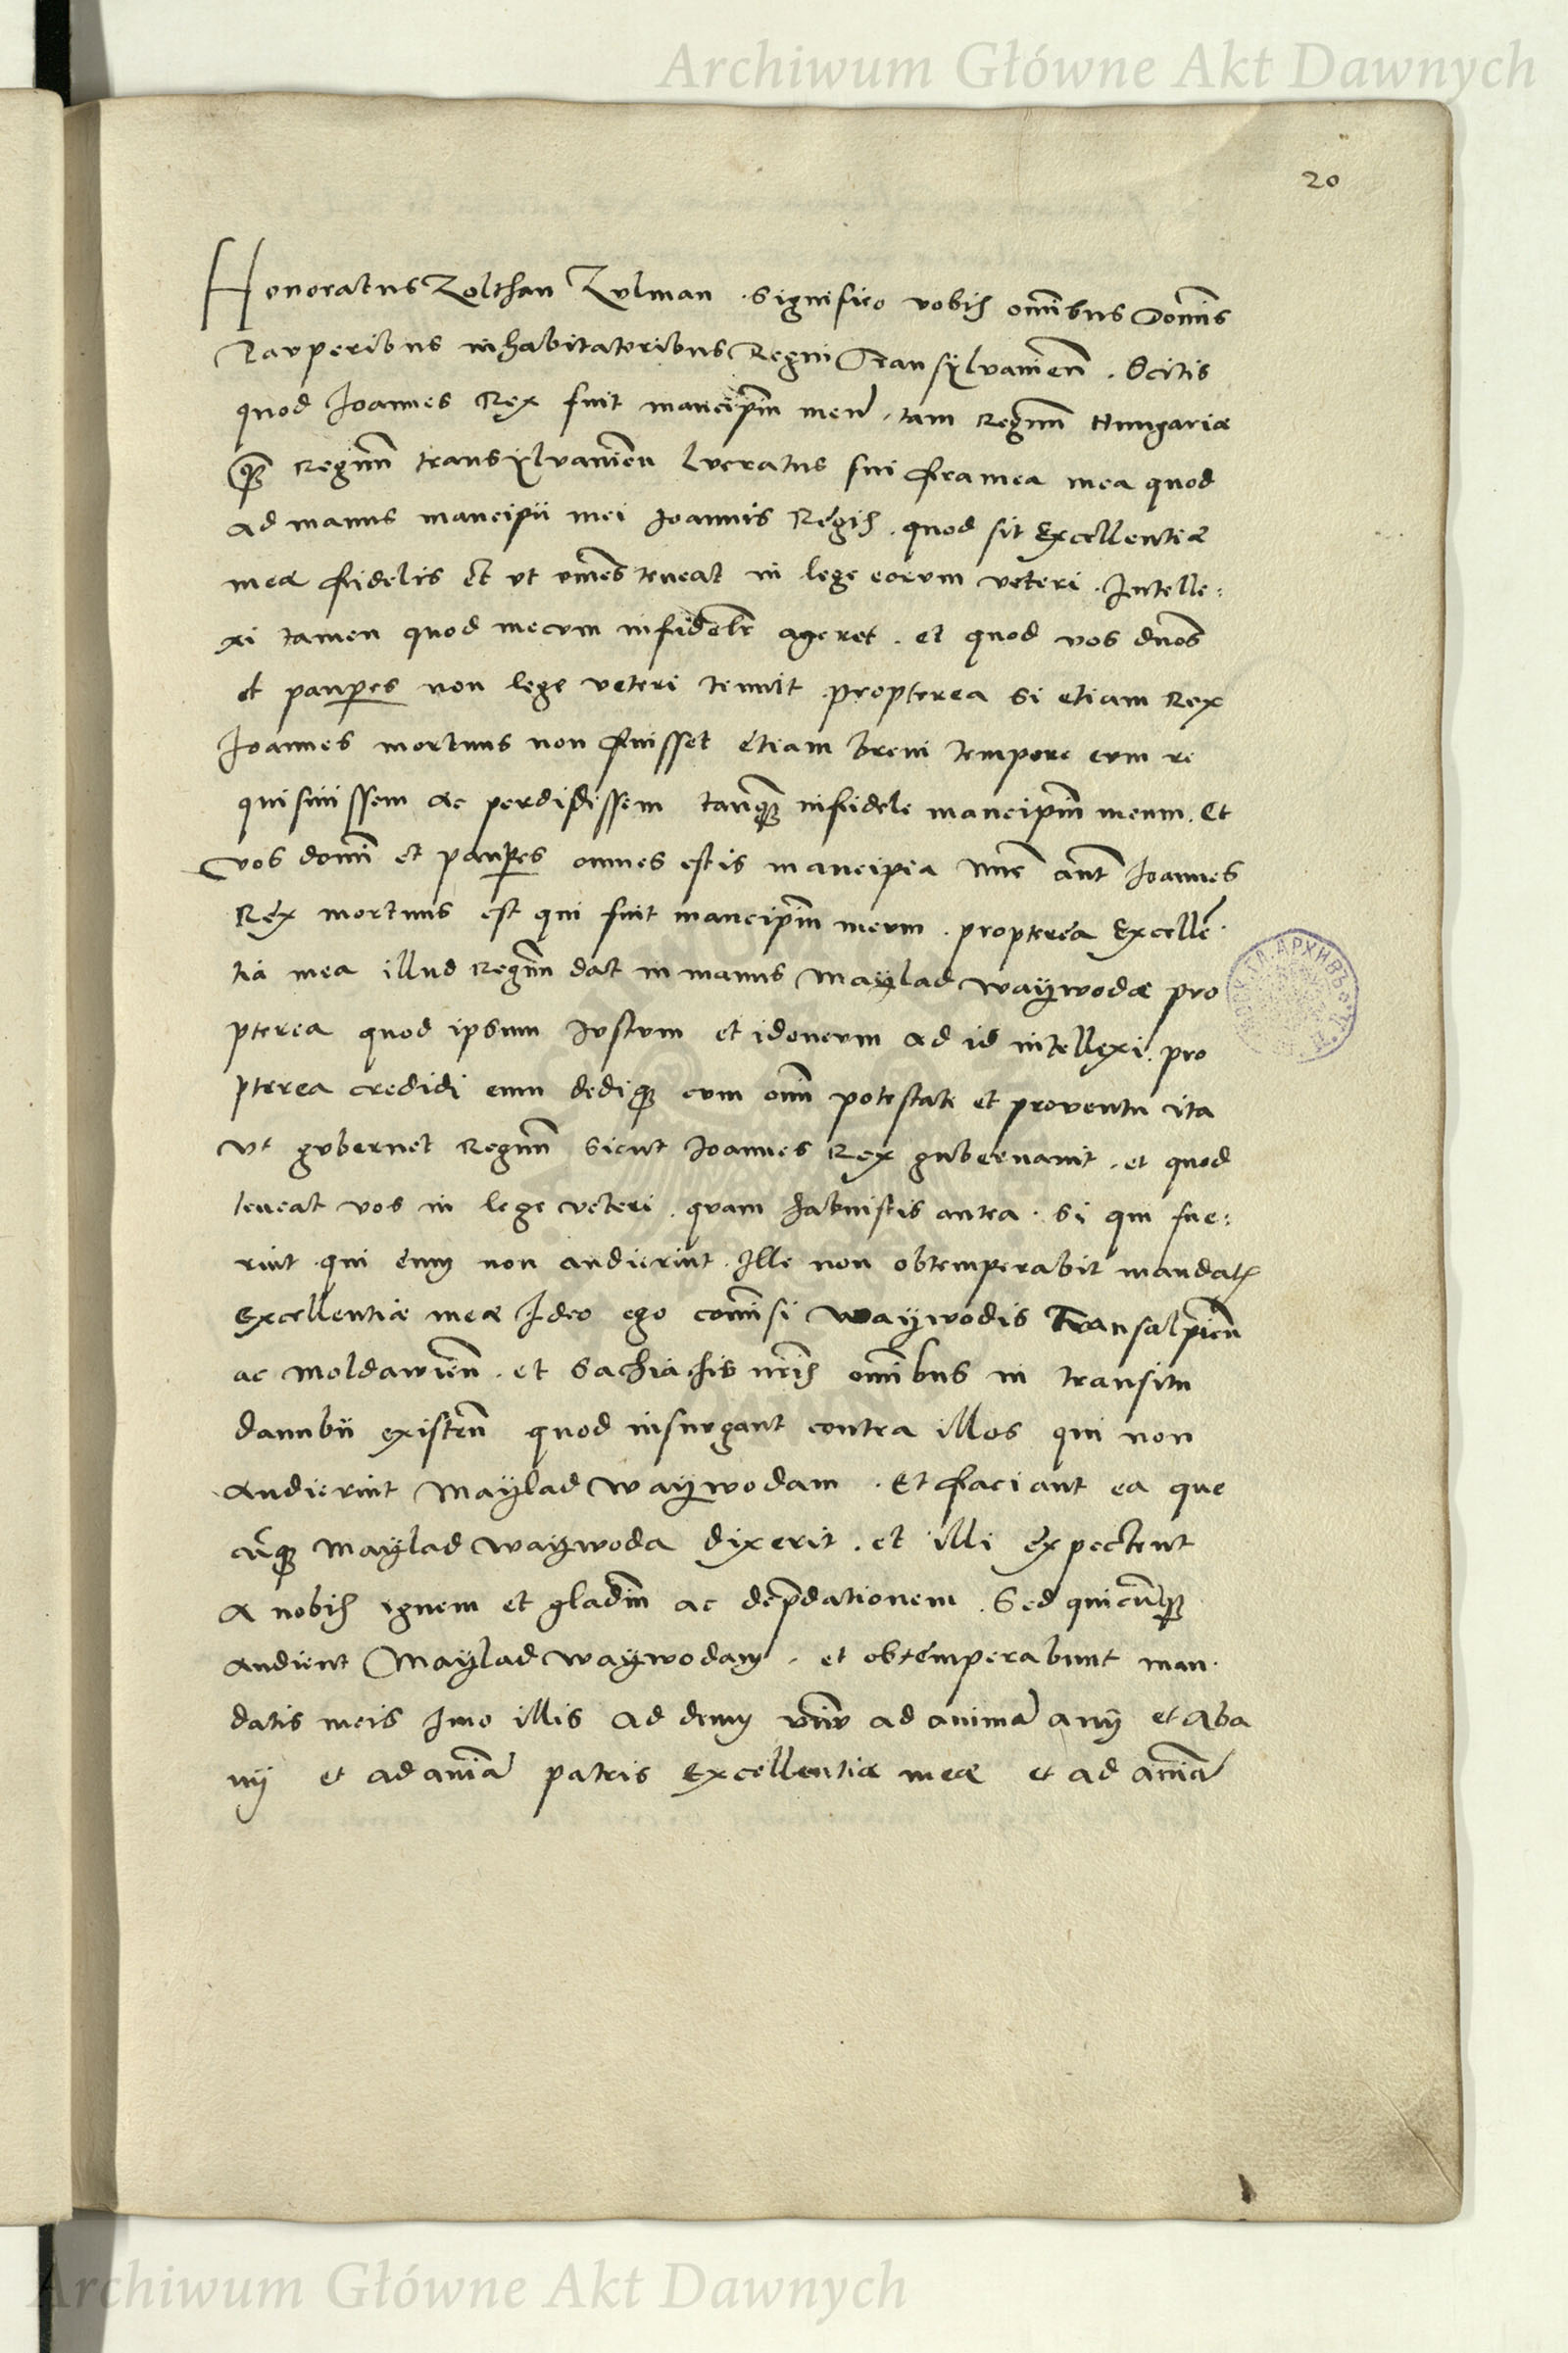 Archiwum Główne Akt Dawnych
20
Honoratus Zolthan Zulman . significo vobis om̃ibus Dom̃is
Pauperibus inhabitatoribus Regni Transylvanieñ . Scitis
quod Joannes Rex fuit mancipiũ meũ . tam Regnũ Hungariæ
q̃ Regnũ transylvanieñ lucratus sui framea mea quod
ad manus mancipii mei Joannis Regis . quod sit Excellentiæ
meæ fidelis et ut om̃es teneat in lege eorum veteri . Intelle:
xi tamen quod mecum infidelr̃ ageret . et quod vos dños
et paup̱es non lege veteri tenuit propterea si etiam Rex
Joannes mortuus non fuisset etiam breui tempore eum re
quisiuissem ac perdidissem tanq̃ infidele mancipiũ meum . Et
vos domĩ et paup̱es omnes estis mancipia Nũc aũt Joannes
Rex mortuus est qui fuit mancipiũ meum . propterea Excellẽ
tia mea illud Regnũ dat in manus Maylad waywodæ pro
pterea quod ipsum Justum et idoneum ad id intellexi . pro
pterea credidi eum dediq̃ cum om̃i potestate et prouentu ita
Ut gubernet Regnũ sicut Joannes Rex gubernauit . et quod
teneat vos in lege veteri . quam habuistis antea . si qui fue:
rint qui eum non audierint . Ille non obtemperabit mandatis
Excellentiæ meæ Ideo ego com̃isi waywodis Transalpieñ
ac Moldawieñ . et sachiachis nr̃is om̃ibus in transitu
danubii existeñ quod insurgant contra illos qui non
audierint Maylad waywodam . Et faciant ea que
cũq̃ Maylad waywoda dixerit . et illi expectent
a nobis ignem et gladiũ ac dep̃dationem . Sed quicũq̃
audient Maylad waywodam . et obtemperabunt man
datis meis Imo illis ad deum ad animã auij et aba
uij et ad aniã patris Excellentiæ meæ et ad aniã
Archiwum Główne Akt Dawnych